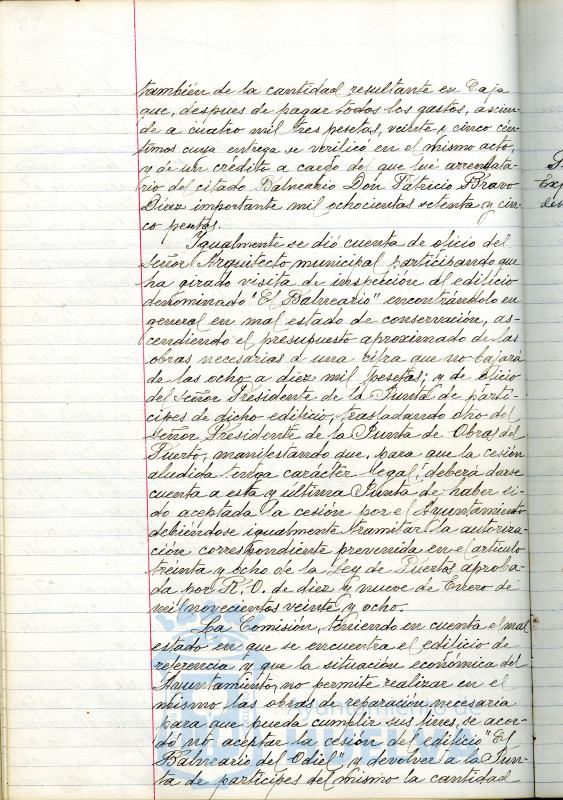 también de la cantidad resultante en Caja
que, despues de pagar todos los gastos, ascien-
de a cuatro mil tres pesetas, veinte y cinco cén-
timos cuya entrega se verificó en el mismo acto,
y de un crédito a cargo del que fué arrendata-
rio del citado Balneario Don Patricio Bravo
Diaz importante mil ochocientas setenta y cin-
co pesetas.
Igualmente se dió cuenta de oficio del
Señor Arquitecto municipal participando que
ha girado visita de inspección al edificio
denominado "El Balneario" encontrándolo en
general en mal estado de conservación, as-
cendiendo el presupuesto aproximado de las
obras necesarias a una cifra que no bajará
de las ocho a diez mil pesetas; y de oficio
del Señor Presidente de la Junta de partí-
cipes de dicho edificio, trasladando otro del
Señor Presidente de la Junta de Obras del
Puerto, manifestando que, para que la cesión
aludida tenga carácter legal, deberá darse
cuenta a esta y última Junta de haber si-
do aceptada la cesión por el Ayuntamiento
debiéndose igualmente tramitar la autoriza-
ción correspondiente prevenida en el artículo
treinta y ocho de la Ley de Puertos aproba-
da por R. O. de diez y nueve de Enero de
mil novecientos veinte y ocho.
La Comisión, teniendo en cuenta el mal
estado en que se encuentra el edificio de
referencia y que la situación económica del
Ayuntamiento, no permite realizar en el
mismo las obras de reparación necesaria
para que pueda cumplir sus fines, se acor-
dó no aceptar la cesión del edificio "El
Balneario del Odiel" y devolver a la Jun-
ta de partícipes del mismo la cantidad